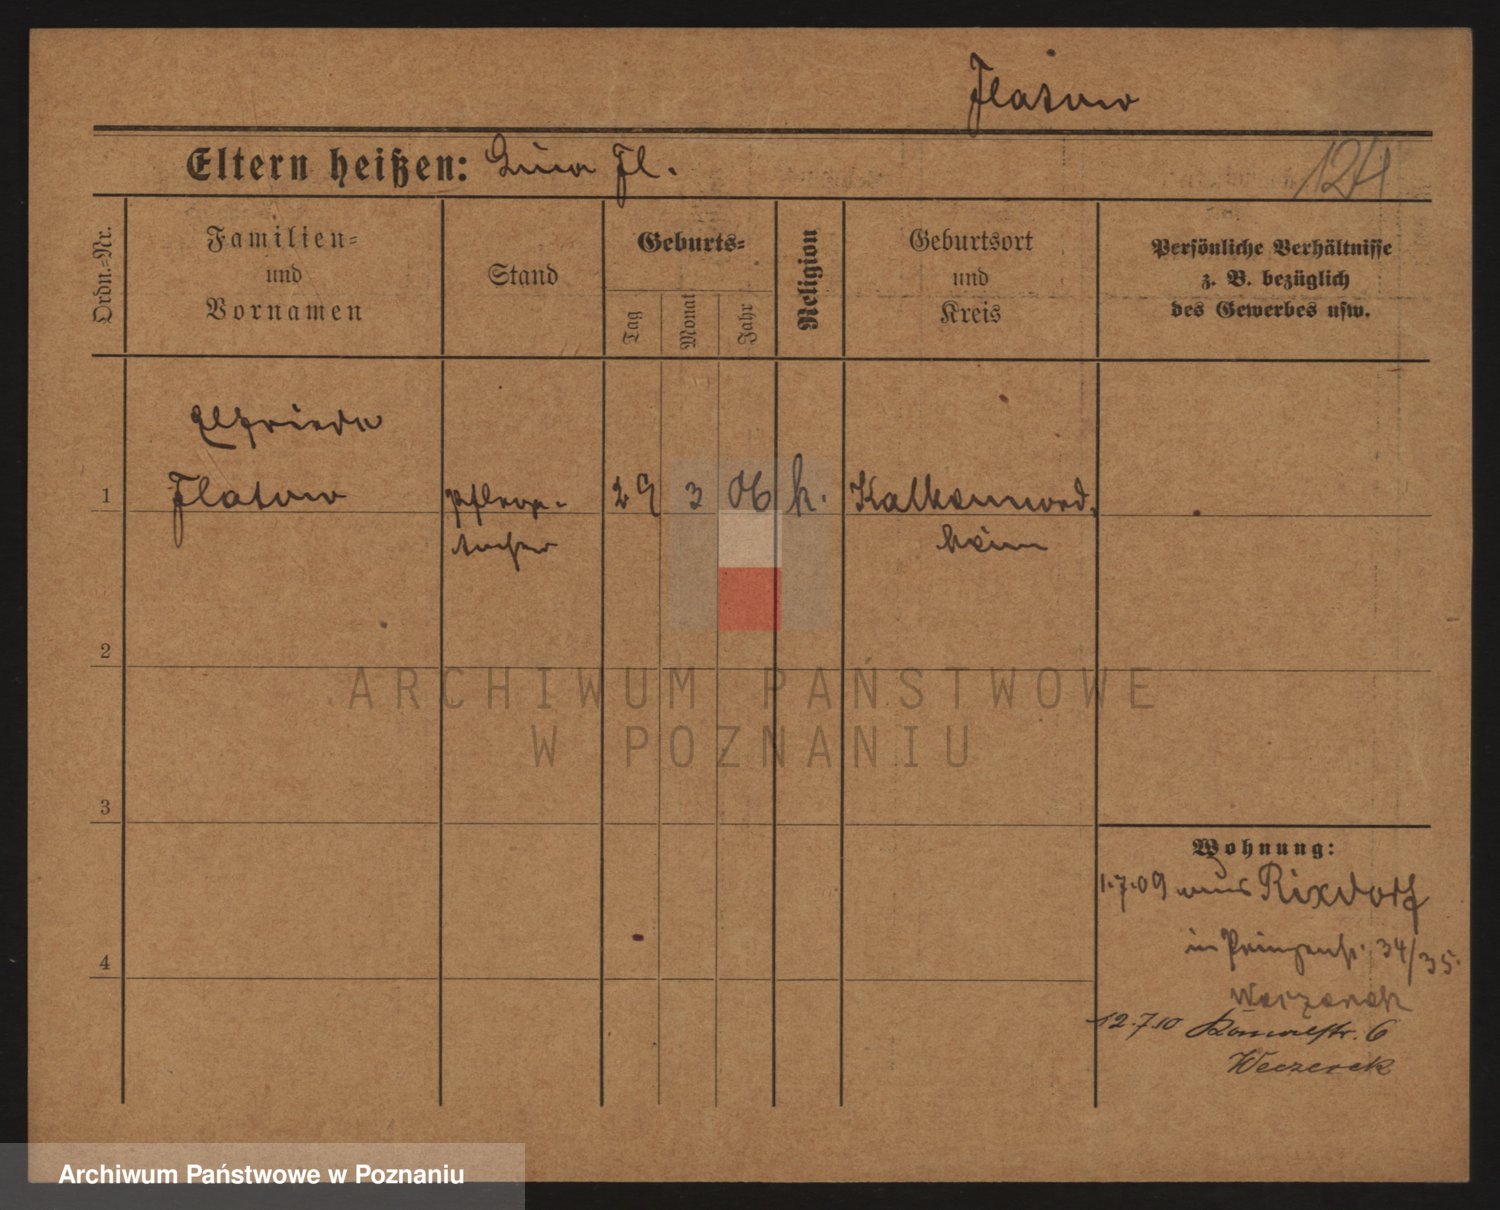 Flatow
Eltern heißen: Lina Fl.
124
Ordn.=Nr.
Familien=
und
Vornamen
Stand
Geburts=
Tag
Monat
Jahr
Religion
Geburtsort
und
Kreis
Persönliche Verhältnisse
z. B. bezüglich
des Gewerbes usw.
Elfriede
1 Flatow Pflege- 29 3 06 k.
tochter heim
2
ARCHIWUM PAŃSTWOWE
W POZNANIU
3
Wohnung:
1.7.09 aus Rixdorf
in Prinzenstr. 34/35.
4
Weczerek
12.7.10 6
Weczerek
Archiwum Państwowe w Poznaniu